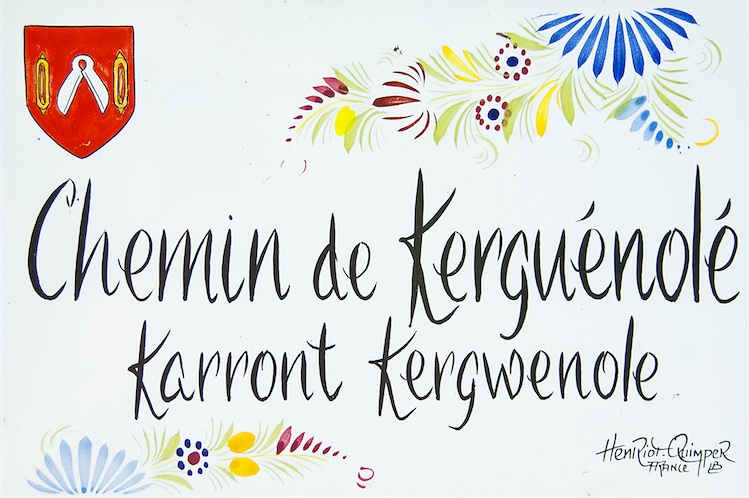 Chemin de Kerguénolé
Karront Kergwenole
HenRiot-Quimper
FRANCE LB